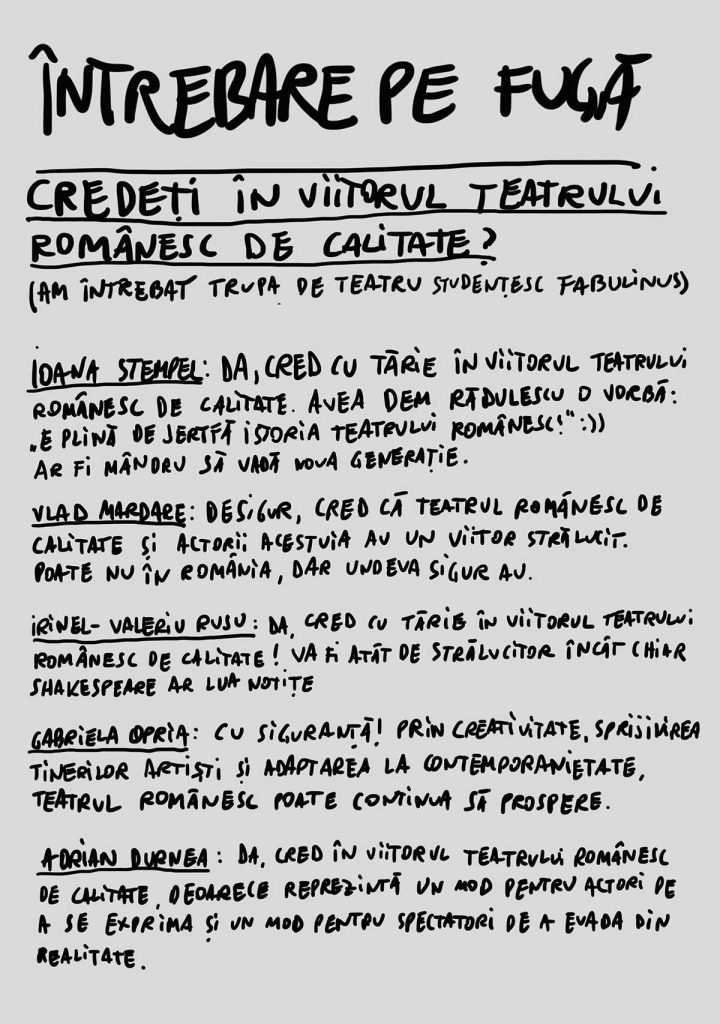 ÎNTREBARE PE FUGĂ
CREDEȚI ÎN VIITORUL TEATRULUI
ROMÂNESC DE CALITATE?
(AM ÎNTREBAT TRUPA DE TEATRU STUDENȚESC FABULINUS)
IOANA STEMPEL: DA, CRED CU TĂRIE ÎN VIITORUL TEATRULUI
ROMÂNESC DE CALITATE. AVEA DEM RĂDULESCU O VORBĂ:
„E PLINĂ DE JERTFĂ ISTORIA TEATRULUI ROMÂNESC!" :))
AR FI MÂNDRU SĂ VADĂ NOUA GENERAȚIE.
VLAD MARDARE: DESIGUR, CRED CĂ TEATRUL ROMÂNESC DE
CALITATE ȘI ACTORII ACESTUIA AU UN VIITOR STRĂLUCIT.
POATE NU ÎN ROMÂNIA, DAR UNDEVA SIGUR AU.
IRINEL-VALERIU RUSU: DA, CRED CU TĂRIE ÎN VIITORUL TEATRULUI
ROMÂNESC DE CALITATE! VA FI ATÂT DE STRĂLUCITOR ÎNCÂT CHIAR
SHAKESPEARE AR LUA NOTIȚE
GABRIELA OPRIA: CU SIGURANȚĂ! PRIN CREATIVITATE, SPRIJINIREA
TINERILOR ARTIȘTI ȘI ADAPTAREA LA CONTEMPORANIETATE,
TEATRUL ROMÂNESC POATE CONTINUA SĂ PROSPERE.
ADRIAN DURNEA: DA, CRED ÎN VIITORUL TEATRULUI ROMÂNESC
DE CALITATE, DEOARECE REPREZINTĂ UN MOD PENTRU ACTORI DE
A SE EXPRIMA ȘI UN MOD PENTRU SPECTATORI DE A EVADA DIN
REALITATE.